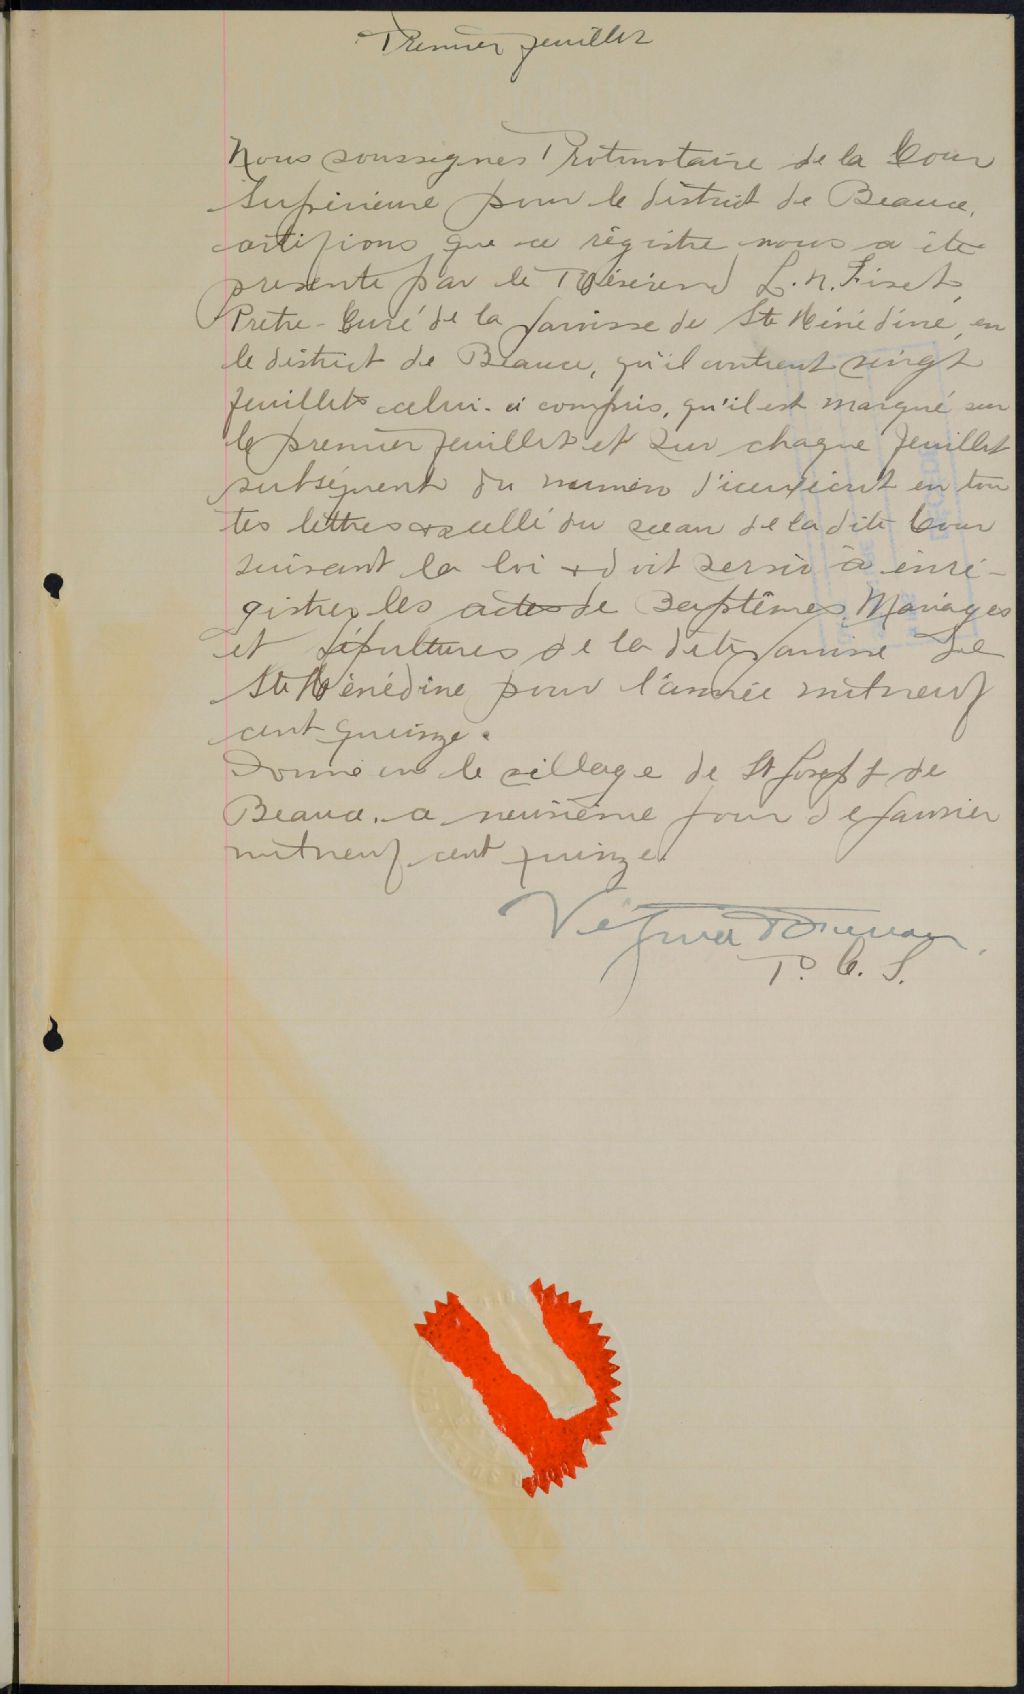 Premier feuillet
Nous soussignés Protonotaire de la Cour
Supérieure pour le district de Beauce,
certifions que ce régistre nous a été
présenté par le Révérend L. N. Fiset,
Prêtre-Curé de la paroisse de Ste Hénédine, en
le district de Beauce, qu'il contient vingt
feuillets celui-ci compris, qu'il est marqué sur
le premier feuillet et sur chaque feuillet
subséquent du numéro d'iceux écrit en tou
tes lettres & scellé du sceau de la dite Cour
suivant la loi & doit servir à enré-
gistrer les actes de Baptêmes, Mariages
et Sépultures de la dite paroisse de
Ste Hénédine pour l'année mil neuf
cent quinze.
Donné en le village de St Joseph de
Beauce, ce neuvième jour de janvier
mil neuf cent quinze.
P. C. S.